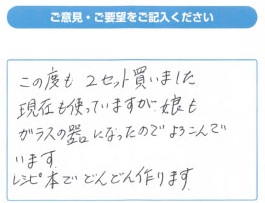 ご意見・ご要望をご記入ください
この度も 2セット買いました
現在も使っていますが、娘も
ガラスの器になったのでよろこんで
います
レシピ本でどんどん作ります